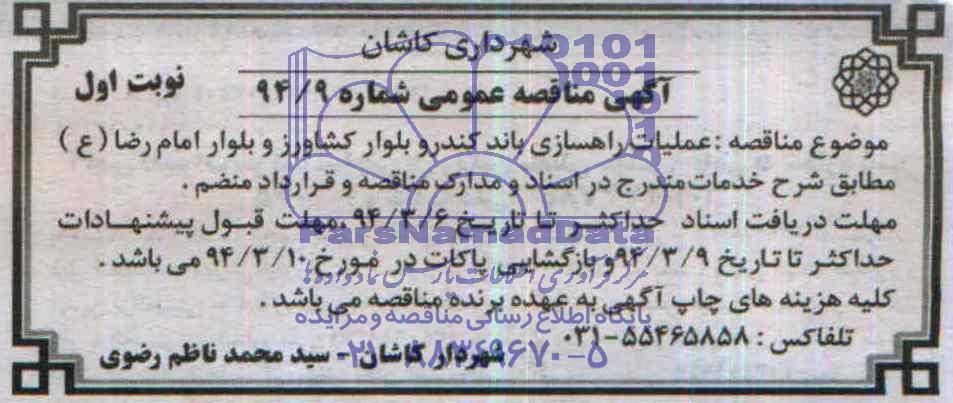 شهرداری کاشان
آگهی مناقصه عمومی شماره ۹۴/۹
نوبت اول
موضوع مناقصه : عملیات راهسازی باند کندرو بلوار کشاورز و بلوار امام رضا (ع)
مطابق شرح خدمات مندرج در اسناد و مدارک مناقصه و قرارداد منضم .
مهلت دریافت اسناد حداکثر تا تاریخ ۹۴/۳/۶ ،مهلت قبول پیشنهادات
حداکثر تا تاریخ ۹۴/۳/۹ و بازگشایی پاکات در مورخ ۹۴/۳/۱۰ می باشد .
کلیه هزینه های چاپ آگهی به عهده برنده مناقصه می باشد .
تلفاکس : ۵۵۴۶۵۸۵۸-۰۳۱
شهردار کاشان - سید محمد ناظم رضوی
ParsNamadData
مرکز فرآوری اطلاعات پارس نماد داده ها
پایگاه اطلاع رسانی مناقصه و مزایده
۰۲۱-۸۸۳۴۹۶۷۰-۵